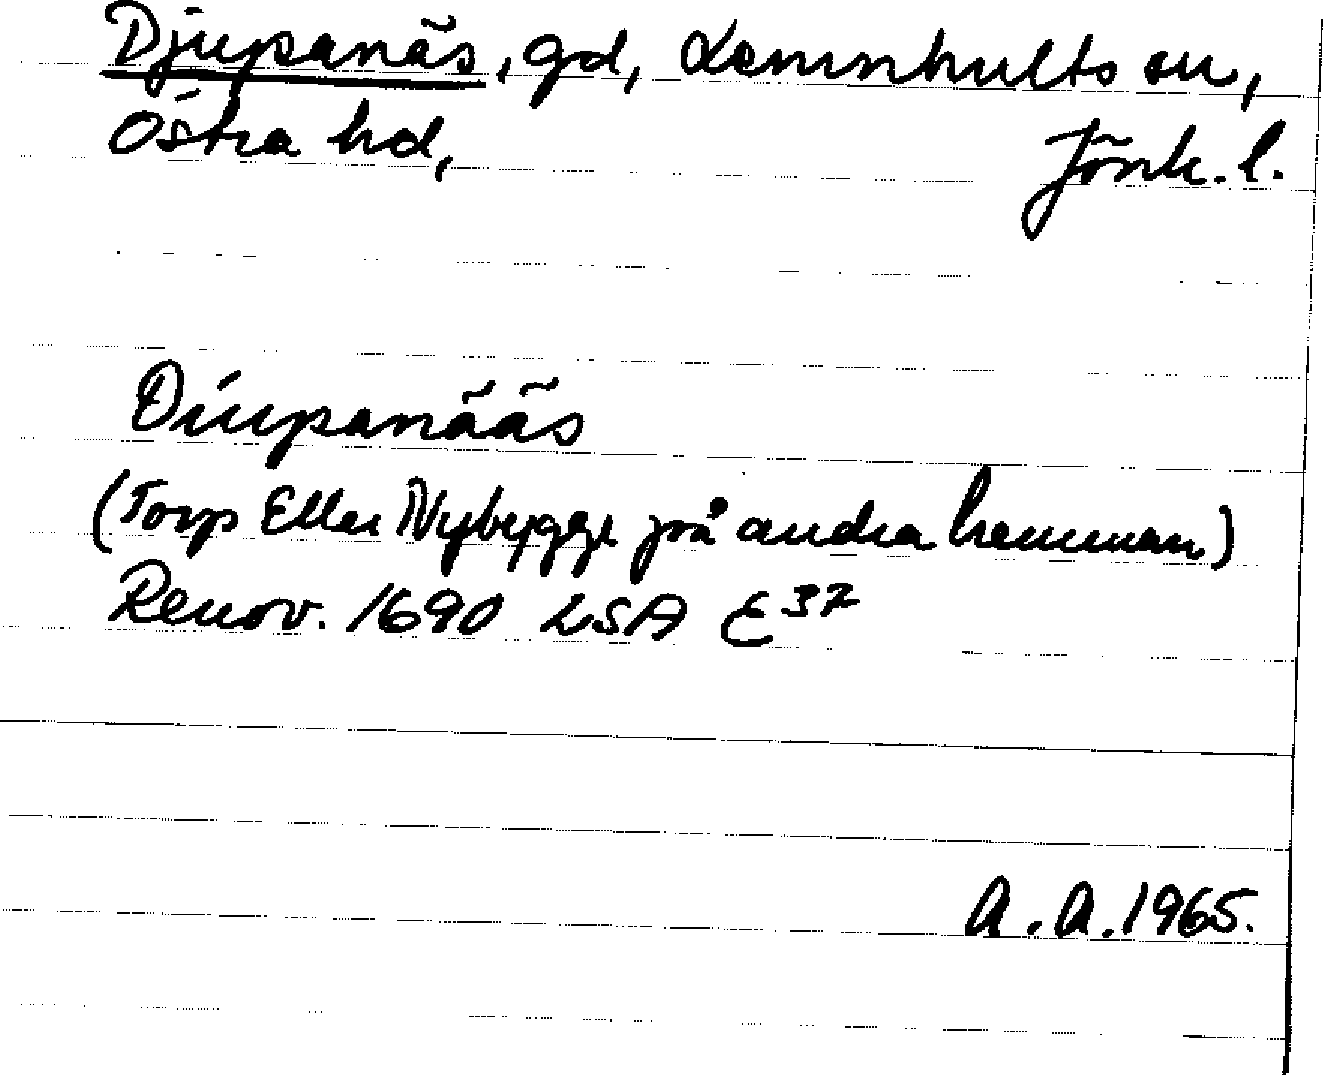 Djupanäs, gd, Lemnhults sn,
Östra hd, Jönk. l.
Diupanääs
(Torp Eller Nybygge på andra hemman)
Renov. 1690 LSA E37
A.A. 1965.